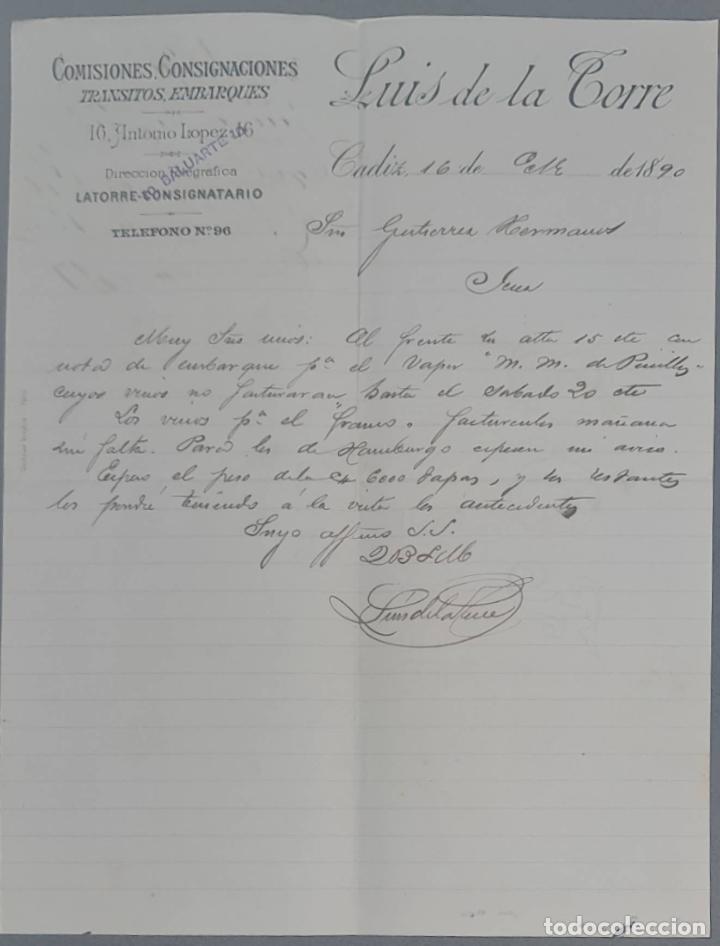 COMISIONES, CONSIGNACIONES
TRANSITOS, EMBARQUES
16, Antonio Lopez, 16
Direccion Telegrafica
LATORRE-CONSIGNATARIO
TELEFONO Nº 96
BALUARTE
Luis de la Torre
Cadiz, 16 de de 1890
Gutierrez Hermanos
Muy Sres mios: Al frente su atta 15 cte con
nota de embarque pª el vapor "M. M. de Pinillos"
cuyos vinos no facturaran hasta el sabado 20 cte
Los vinos pª el "Franco" facturelos mañana
sin falta. Para los de Hamburgo esperen mi aviso.
Espero el peso de las 6000 tapas, y los restantes
los pondré teniendo á la vista los antecedentes
Suyo affmo S.S.
Q B S M
Luis de la Torre
todocoleccion.net